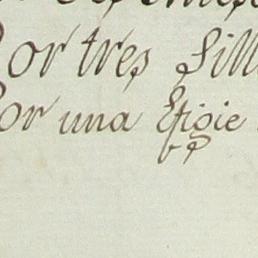 Por tres Sill
Por una Efigie